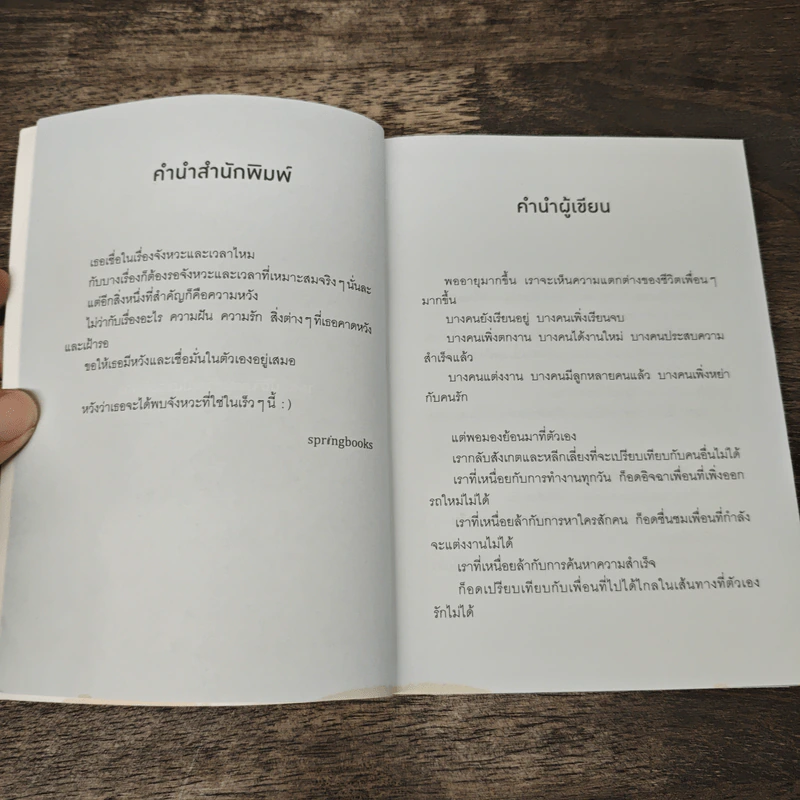 คำนำสำนักพิมพ์
เธอเชื่อในเรื่องจังหวะและเวลาไหม
กับบางเรื่องก็ต้องรอจังหวะและเวลาที่เหมาะสมจริงๆ นั่นละ
แต่อีกสิ่งหนึ่งที่สำคัญก็คือความหวัง
ไม่ว่ากับเรื่องอะไร ความฝัน ความรัก สิ่งต่างๆ ที่เธอคาดหวัง
และเฝ้ารอ
ขอให้เธอมีหวังและเชื่อมั่นในตัวเองอยู่เสมอ
หวังว่าเธอจะได้พบจังหวะที่ใช่ในเร็วๆ นี้ :)
springbooks
คำนำผู้เขียน
พออายุมากขึ้น เราจะเห็นความแตกต่างของชีวิตเพื่อนๆ
มากขึ้น
บางคนยังเรียนอยู่ บางคนเพิ่งเรียนจบ
บางคนเพิ่งตกงาน บางคนได้งานใหม่ บางคนประสบความ
สำเร็จแล้ว
บางคนแต่งงาน บางคนมีลูกหลายคนแล้ว บางคนเพิ่งหย่า
กับคนรัก
แต่พอมองย้อนมาที่ตัวเอง
เรากลับสังเกตและหลีกเลี่ยงที่จะเปรียบเทียบกับคนอื่นไม่ได้
เราที่เหนื่อยกับการทำงานทุกวัน ก็อดอิจฉาเพื่อนที่เพิ่งออก
รถใหม่ไม่ได้
เราที่เหนื่อยล้ากับการหาใครสักคน ก็อดชื่นชมเพื่อนที่กำลัง
จะแต่งงานไม่ได้
เราที่เหนื่อยล้ากับการค้นหาความสำเร็จ
ก็อดเปรียบเทียบกับเพื่อนที่ไปได้ไกลในเส้นทางที่ตัวเอง
รักไม่ได้